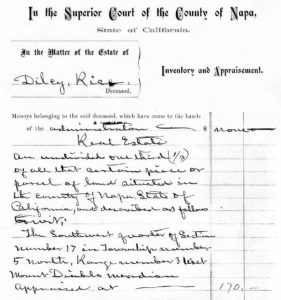 In the Superior Court of the County of Napa,
State of California.
In the Matter of the Estate of
Diley, Rice.
Deceased.
Inventory and Appraisement.
Moneys belonging to the said deceased, which have come to the hands
of the administration $ none
Real Estate
An undivided one third (1/3)
of all that certain piece or
parcel of land situated in
the County of Napa State of
California, and described as follows
to wit:
The Southwest quarter of Section
number 17 in Township number
5 North, Range number 3 West
Mount Diablo meridian
Appraised at 170.